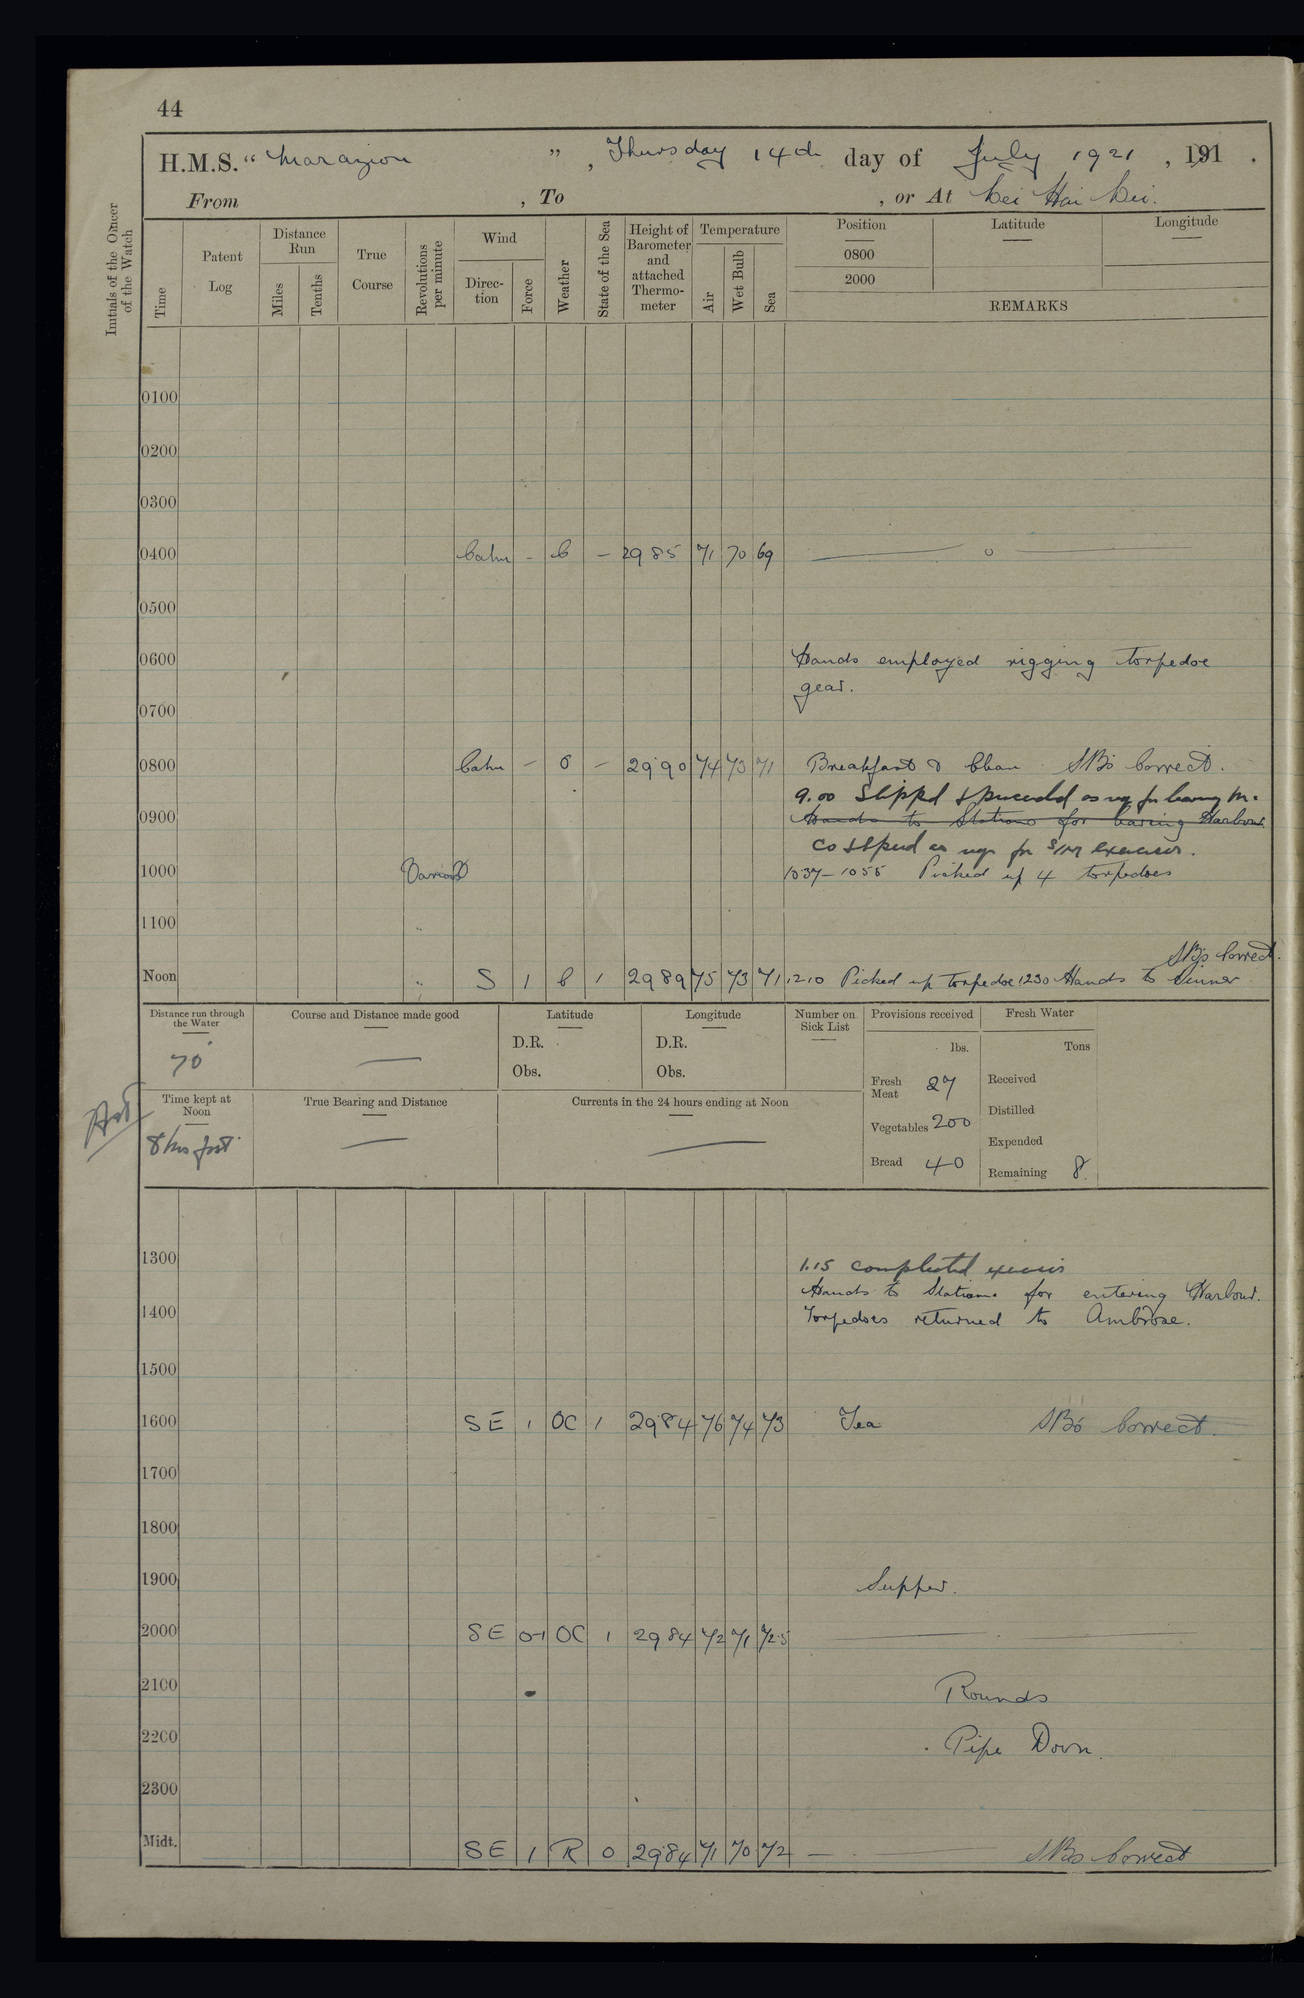 44
H.M.S. " Marazion " , Thursday 14th day of July 1921 , 191 .
From , To , or At Wei Hai Wei.
Initials of the Officer of the Watch
Time
Patent Log
Distance Run
Miles
Tenths
True Course
Revolutions per minute
Wind
Direc-tion
Force
Weather
State of the Sea
Height of Barometer and attached Thermo-meter
Temperature
Air
Wet Bulb
Sea
Position
0800
2000
Latitude
Longitude
REMARKS
0100
0200
0300
0400 Calm - b - 29 85 71 70 69 o
0500
0600 Hands employed rigging torpedoe
gear.
0700
0800 Calm - o - 29.90 74 73 71 Breakfast & Clean SBs Correct.
9.00 Slipped & proceeded as req for leaving Hr.
0900 Hands to Stations for leaving Harbour
Co & Speed as req for S/M exercises.
1000 Various 1037-1055 Picked up 4 torpedoes
1100 "
SBs Correct.
Noon " S 1 b 1 29 89 75 73 71 1210 Picked up torpedoe 1230 Hands to Dinner
Distance run through the Water
70
Course and Distance made good
Latitude
D.R.
Obs.
Longitude
D.R.
Obs.
Number on Sick List
Provisions received
lbs.
Fresh Meat 27
Vegetables 200
Bread 40
Fresh Water
Tons
Received
Distilled
Expended
Remaining 8.
Time kept at Noon
8 hrs fast
True Bearing and Distance
Currents in the 24 hours ending at Noon
1300 1.15 completed exercises
Hands to Stations for entering Harbour.
1400 Torpedoes returned to Ambrose.
1500
1600 SE 1 OC 1 29.84 76 74 73 Tea SBs Correct.
1700
1800
1900 Supper.
2000 SE 0-1 OC 1 29 84 72 71 72.5
2100 Rounds
2200 Pipe Down.
2300
Midt. SE 1 R 0 29.84 71 70 72 SBs Correct